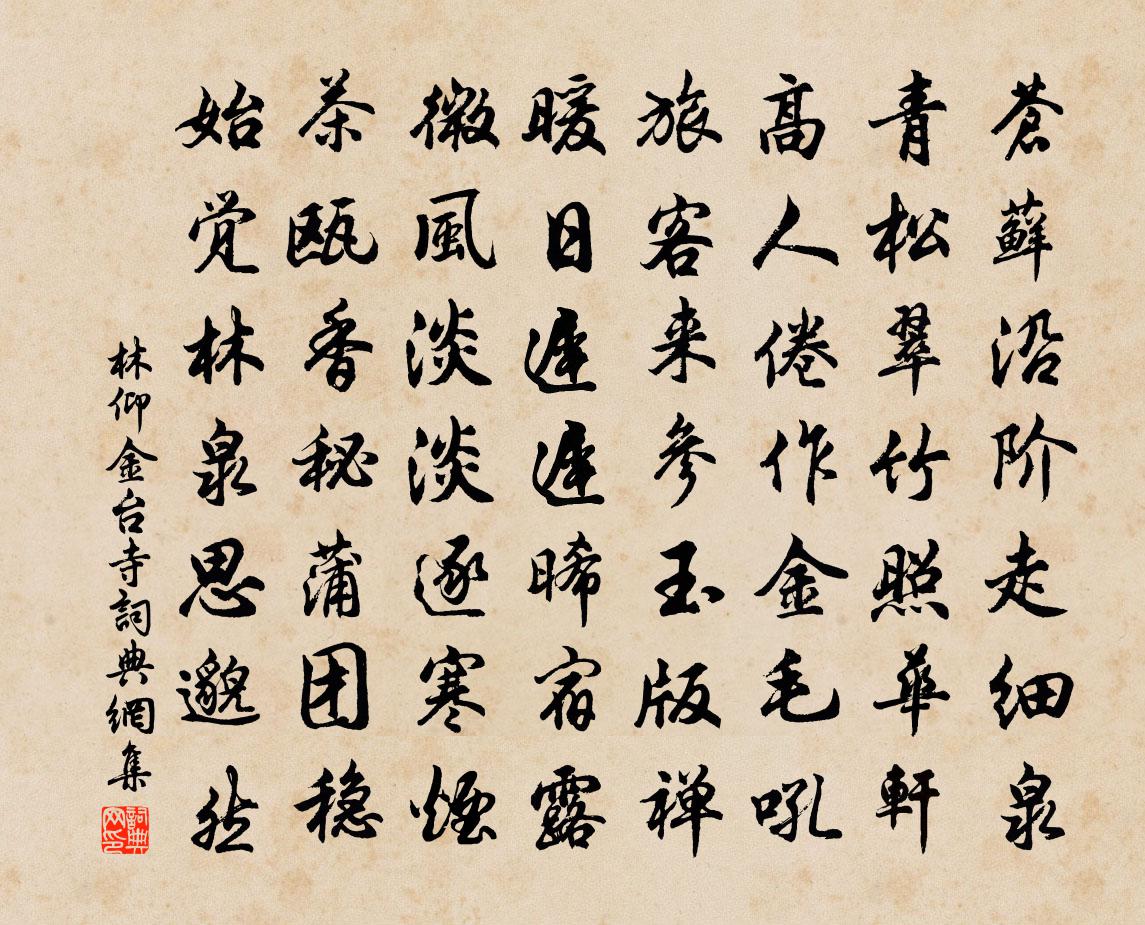 蒼蘚沿阶走细泉
青松翠竹照華軒
高人倦作金毛吼
旅客来参玉版禅
暖日遲遲晞宿露
微風淡淡逐寒煙
茶甌香秘蒲团稳
始觉林泉思邈然
林仰金台寺詞典網集
詞典网印